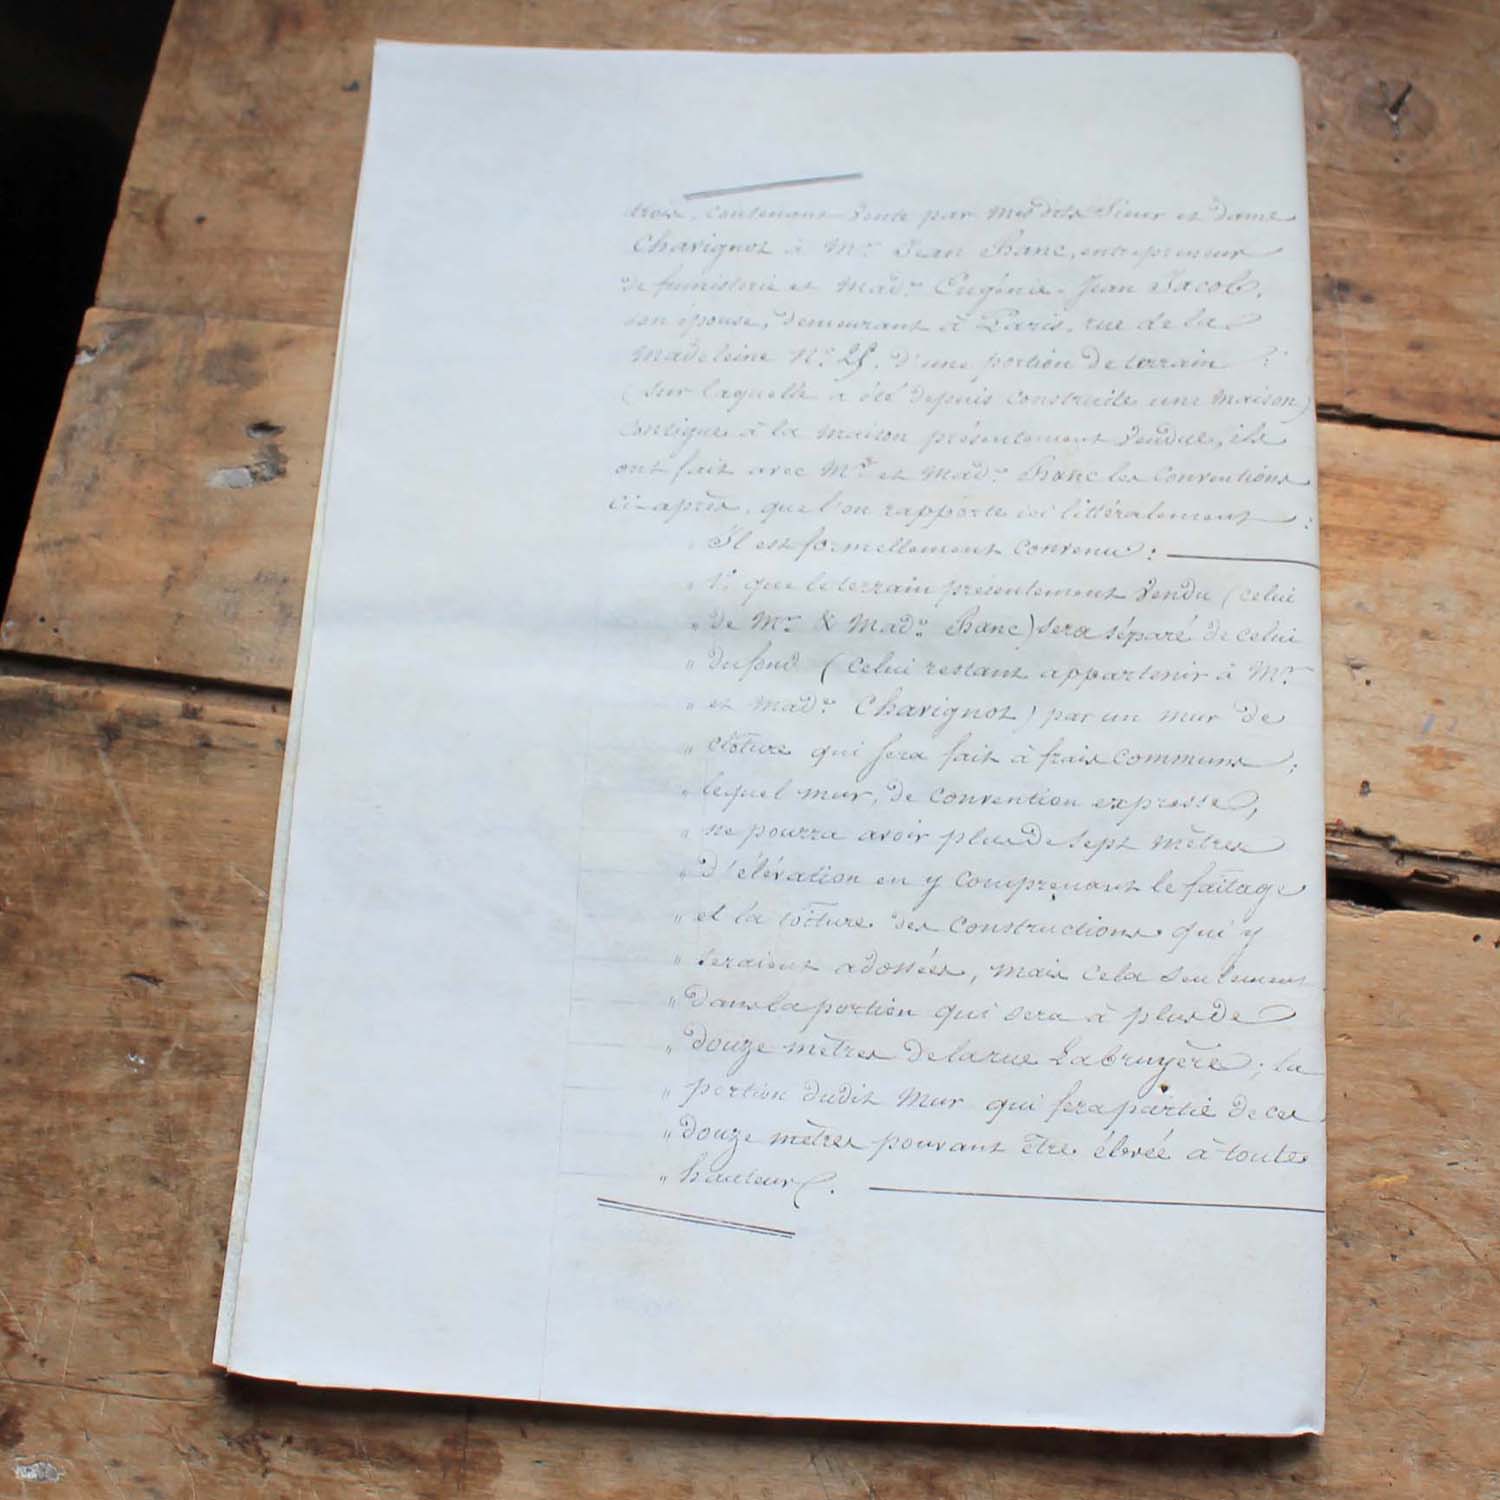 trois, contenant vente par mesdits Sieur et dame
Chavignot à Mr. Jean Franc, entrepreneur
de fumisterie et Made. Eugénie Jean Jacob,
son épouse, demeurant à Paris, rue de la
Madeleine No. 25, d'une portion de terrain
(sur laquelle a été depuis construite une maison)
contigue à la maison présentement vendue, ils
ont fait avec Mr. et Made. Franc les conventions
ci-après, que l'on rapporte ici littéralement :
" Il est formellement convenu :
" 1o. que le terrain présentement vendu (celui
" de Mr. & Made. Franc) sera séparé de celui
" du fond (celui restant appartenir à Mr.
" et Made. Chavignot) par un mur de
" clôture qui sera fait à frais communs ;
" lequel mur, de convention expresse,
" ne pourra avoir plus de sept mètres
" d'élévation en y comprenant le faîtage
" et la toiture des constructions qui y
" seraient adossées, mais cela seulement
" dans la portion qui sera à plus de
" douze mètres de la rue Labruyère ; la
" portion dudit mur qui fera partie de ces
" douze mètres pouvant être élevée à toute
" hauteur.